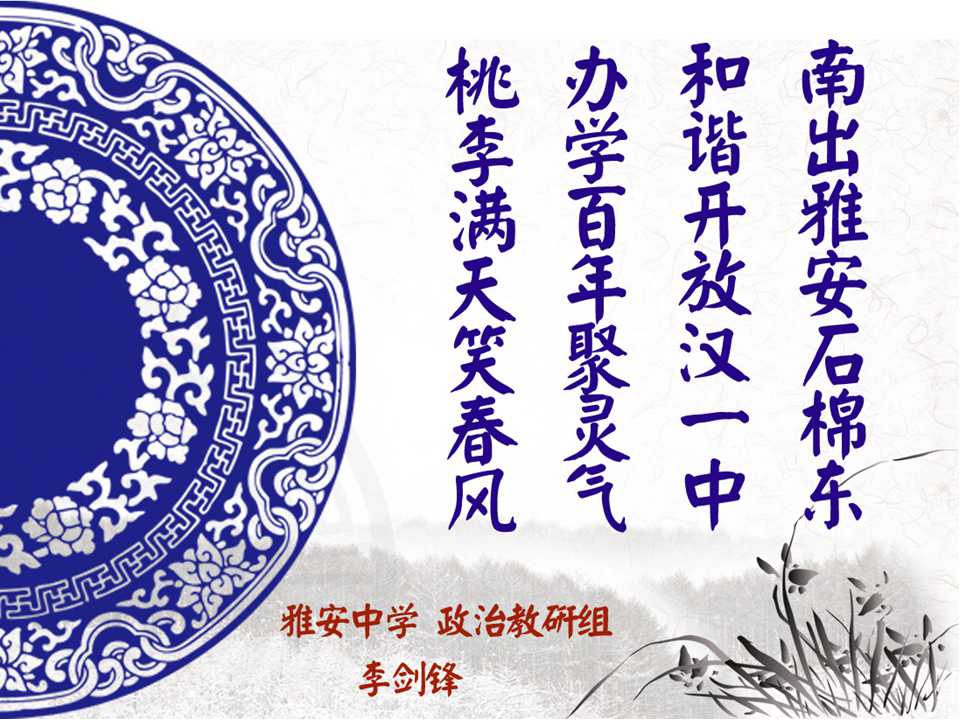 南出雅安石棉东
和谐开放汉一中
办学百年聚灵气
桃李满天笑春风
雅安中学 政治教研组
李剑锋